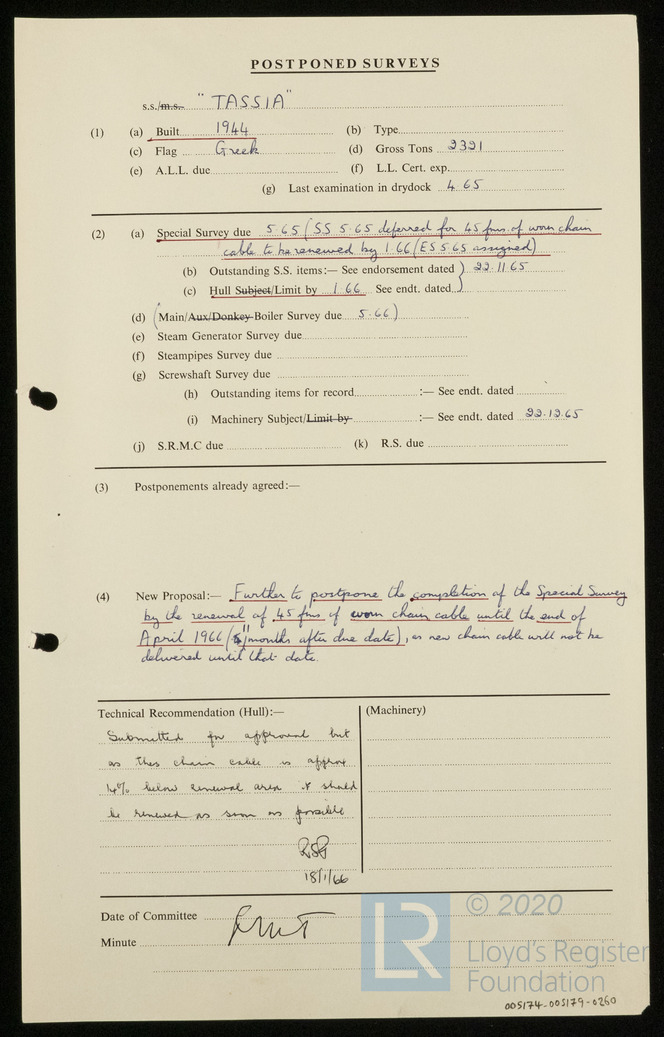 POSTPONED SURVEYS
s.s./m.s. "TASSIA"
(1) (a) Built 1944 (b) Type
(c) Flag Greek (d) Gross Tons 2321
(e) A.L.L. due (f) L.L. Cert. exp.
(g) Last examination in drydock 4.65
(2) (a) Special Survey due 5.65 (SS 5.65 deferred for 45 fms. of worn chain
cable to be renewed by 1.66 (ES 5.65 assigned)
(b) Outstanding S.S. items:— See endorsement dated ) 22.11.65
(c) Hull Subject/Limit by 1.66 See endt. dated )
(d) (Main/Aux/Donkey Boiler Survey due 5.66)
(e) Steam Generator Survey due
(f) Steampipes Survey due
(g) Screwshaft Survey due
(h) Outstanding items for record :— See endt. dated
(i) Machinery Subject/Limit by :— See endt. dated 22.12.65
(j) S.R.M.C due (k) R.S. due
(3) Postponements already agreed:—
(4) New Proposal:— Further to postpone the completion of the Special Survey
by the renewal of 45 fms of worn chain cable until the end of
April 1966 ( months after due date), as new chain cable will not be
delivered until that date.
Technical Recommendation (Hull):— (Machinery)
Submitted for approval but
as this chain cable is approx
14% below renewal area it should
be renewed as soon as possible
18/1/66
Date of Committee
Minute
LR
© 2020
Lloyd's Register
Foundation
005174-005179-0260